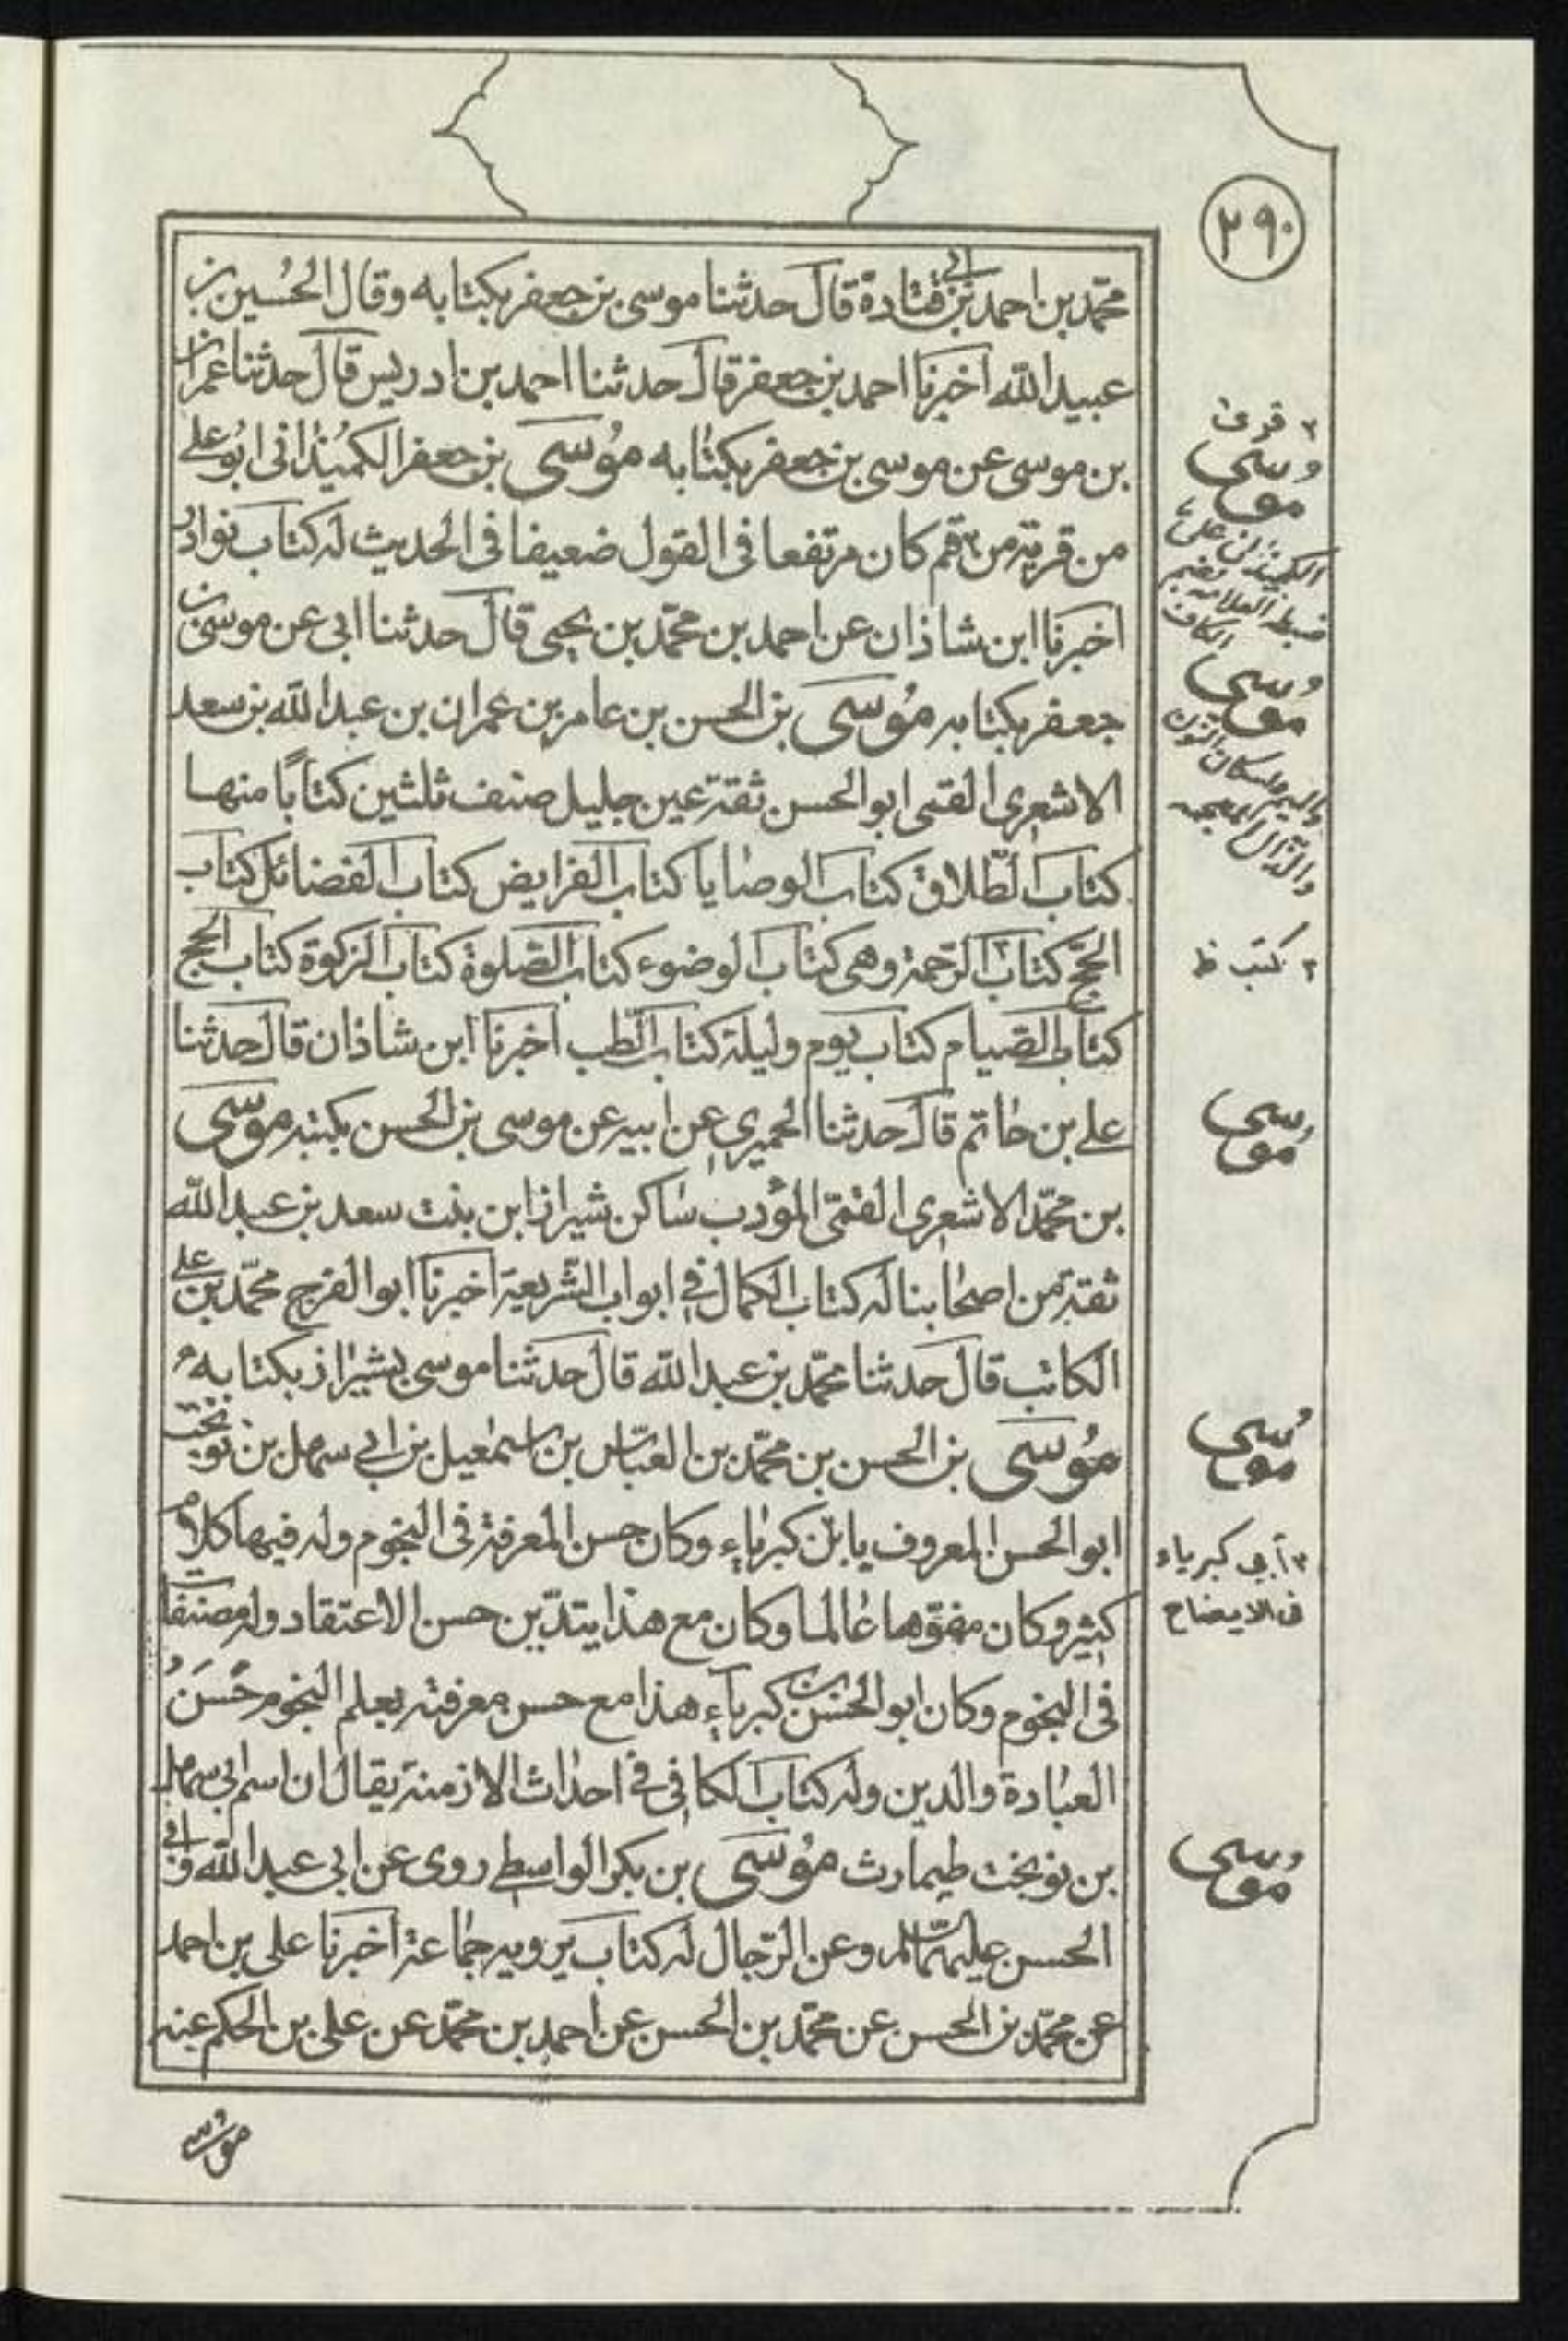 ٢٩٠
محمّد بن احمد بن ابي قتادة قال حدثنا موسى بن جعفر بكتابه وقال الحُسين بن
عبيد الله اخبرنا احمد بن جعفر قال حدثنا احمد بن ادريس قال حدثنا عمران
بن موسى عن موسى بن جعفر بكتابه مُوسَى بن جعفر الكمُيذانى ابُو على
من قرية من قم كان مرتفعا فى القول ضعيفا فى الحديث له كتاب نوادر
اخبرنا ابن شاذان عن احمد بن محمّد بن يحيى قال حدثنا ابى عن موسى بن
جعفر بكتابه مُوسَى بن الحسن بن عامر بن عمران بن عبد الله بن سعد
الاشعرى القمى ابو الحسن ثقة عين جليل صنف ثلثين كتابًا منها
كتاب الطّلاق كتاب الوصايا كتاب الفرايض كتاب الفضائل كتاب
الحجّ كتاب الرّحمة وهى كتاب الوضوء كتاب الصّلوة كتاب الزكوة كتاب الحج
كتاب الصّيام كتاب يوم وليلة كتاب الطّب اخبرنا ابن شاذان قال حدثنا
على بن حاتم قال حدثنا الحميرى عن ابيه عن موسى بن الحسن بكتبه موسَى
بن محمّد الاشعرى القمّى المؤدب ساكن شيراز ابن بنت سعد بن عبد الله
ثقة من اصحابنا له كتاب الكمال في ابواب الشّريعة اخبرنا ابو الفرج محمّد بن على
الكاتب قال حدثنا محمّد بن عبد الله قال حدثنا موسى بشيراز بكتابه
مُوسَى بن الحسن بن محمّد بن العبّاس بن اسمعيل بن ابي سهل بن نوبخت
ابو الحسن المعروف بابن كبرياء وكان حسن المعرفة فى النجوم وله فيها كلام
كثير وكان مفوّها عالما وكان مع هذا يتديّن حسن الاعتقاد وله مصنفات
فى النجوم وكان ابو الحسن بن كبرياء هذا مع حسن معرفته بعلم النجوم حَسَنُ
العبادة والدين وله كتاب الكافى في احداث الازمنة يقال ان اسم ابى سهل
بن نوبخت طيمارث مُوسَى بن بكر الواسطي روى عن ابى عبد الله وابي
الحسن عليهمالسّلام وعن الرّجال له كتاب يرويه جماعة اخبرنا على بن احمد
عن محمّد بن الحسن عن محمّد بن الحسن عن احمد بن محمّد عن على بن الحكم عنه
موُسى
قرى
مُوسى
الكميذانى
ضبطه العلامه بضم
الكاف
مُوسى
والميم واسكان النون
والذال المعجمه
٢ كتب ظ
مُوسى
مُوسى
أبي كبرياء
فى الايضاح
مُوسى